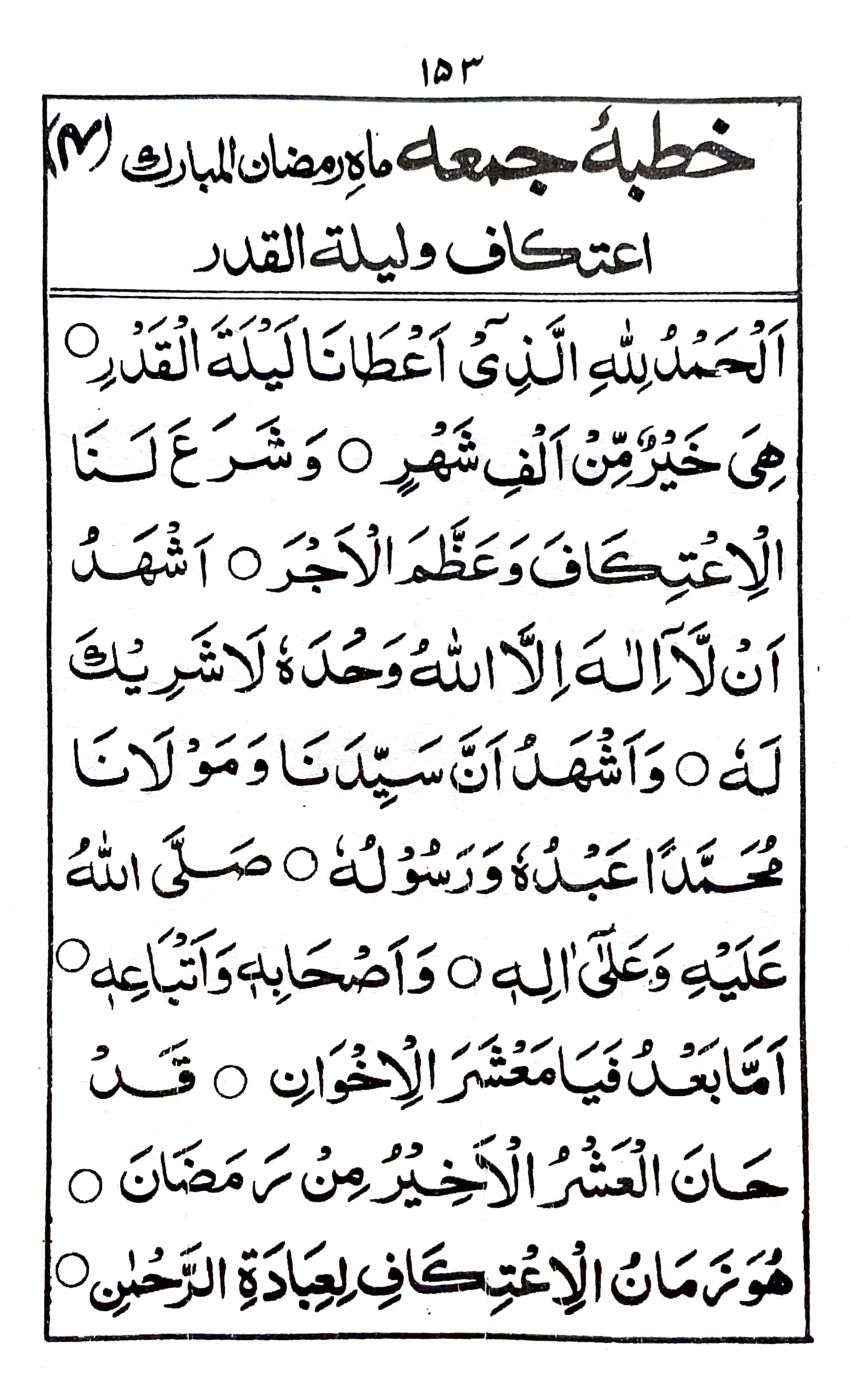 ۱۵۳
خطبۂ جمعہ ماہِ رمضان المبارک (۴)
اعتکاف و لیلۃ القدر
اَلْحَمْدُ لِلّٰہِ الَّذِیْٓ اَعْطَانَا لَیْلَةَ الْقَدْرِ ○
ھِیَ خَیْرٌ مِّنْ اَلْفِ شَھْرٍ ○ وَشَرَعَ لَنَا
الْاِعْتِکَافَ وَعَظَّمَ الْاَجْرَ ○ اَشْھَدُ
اَنْ لَّآ اِلٰہَ اِلَّا اللّٰہُ وَحْدَہٗ لَا شَرِیْكَ
لَہٗ ○ وَاَشْھَدُ اَنَّ سَیِّدَنَا وَمَوْلَانَا
مُحَمَّدًا عَبْدُہٗ وَرَسُوْلُہٗ ○ صَلَّی اللّٰہُ
عَلَیْہِ وَعَلٰٓی اٰلِہٖ ○ وَاَصْحَابِہٖ وَاَتْبَاعِہٖ ○
اَمَّا بَعْدُ فَیَا مَعْشَرَ الْاِخْوَانِ ○ قَدْ
حَانَ الْعَشْرُ الْاَخِیْرُ مِنْ رَمَضَانَ ○
ھُوَ زَمَانُ الْاِعْتِکَافِ لِعِبَادَةِ الرَّحْمٰنِ ○